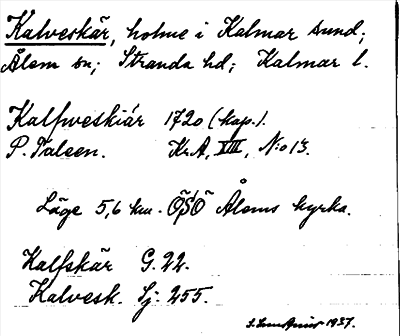 Kalveskär, holme i Kalmar sund;
Ålem sn; Stranda hd; Kalmar l.
Kalfweskiär 1720 (kap.).
P. Taleen. KrA, XIII, N:o 13.
Läge 5,6 km. ÖSÖ Ålems kyrka.
Kalfskär G. 22.
Kalvesk. Sj. 255.
1937.